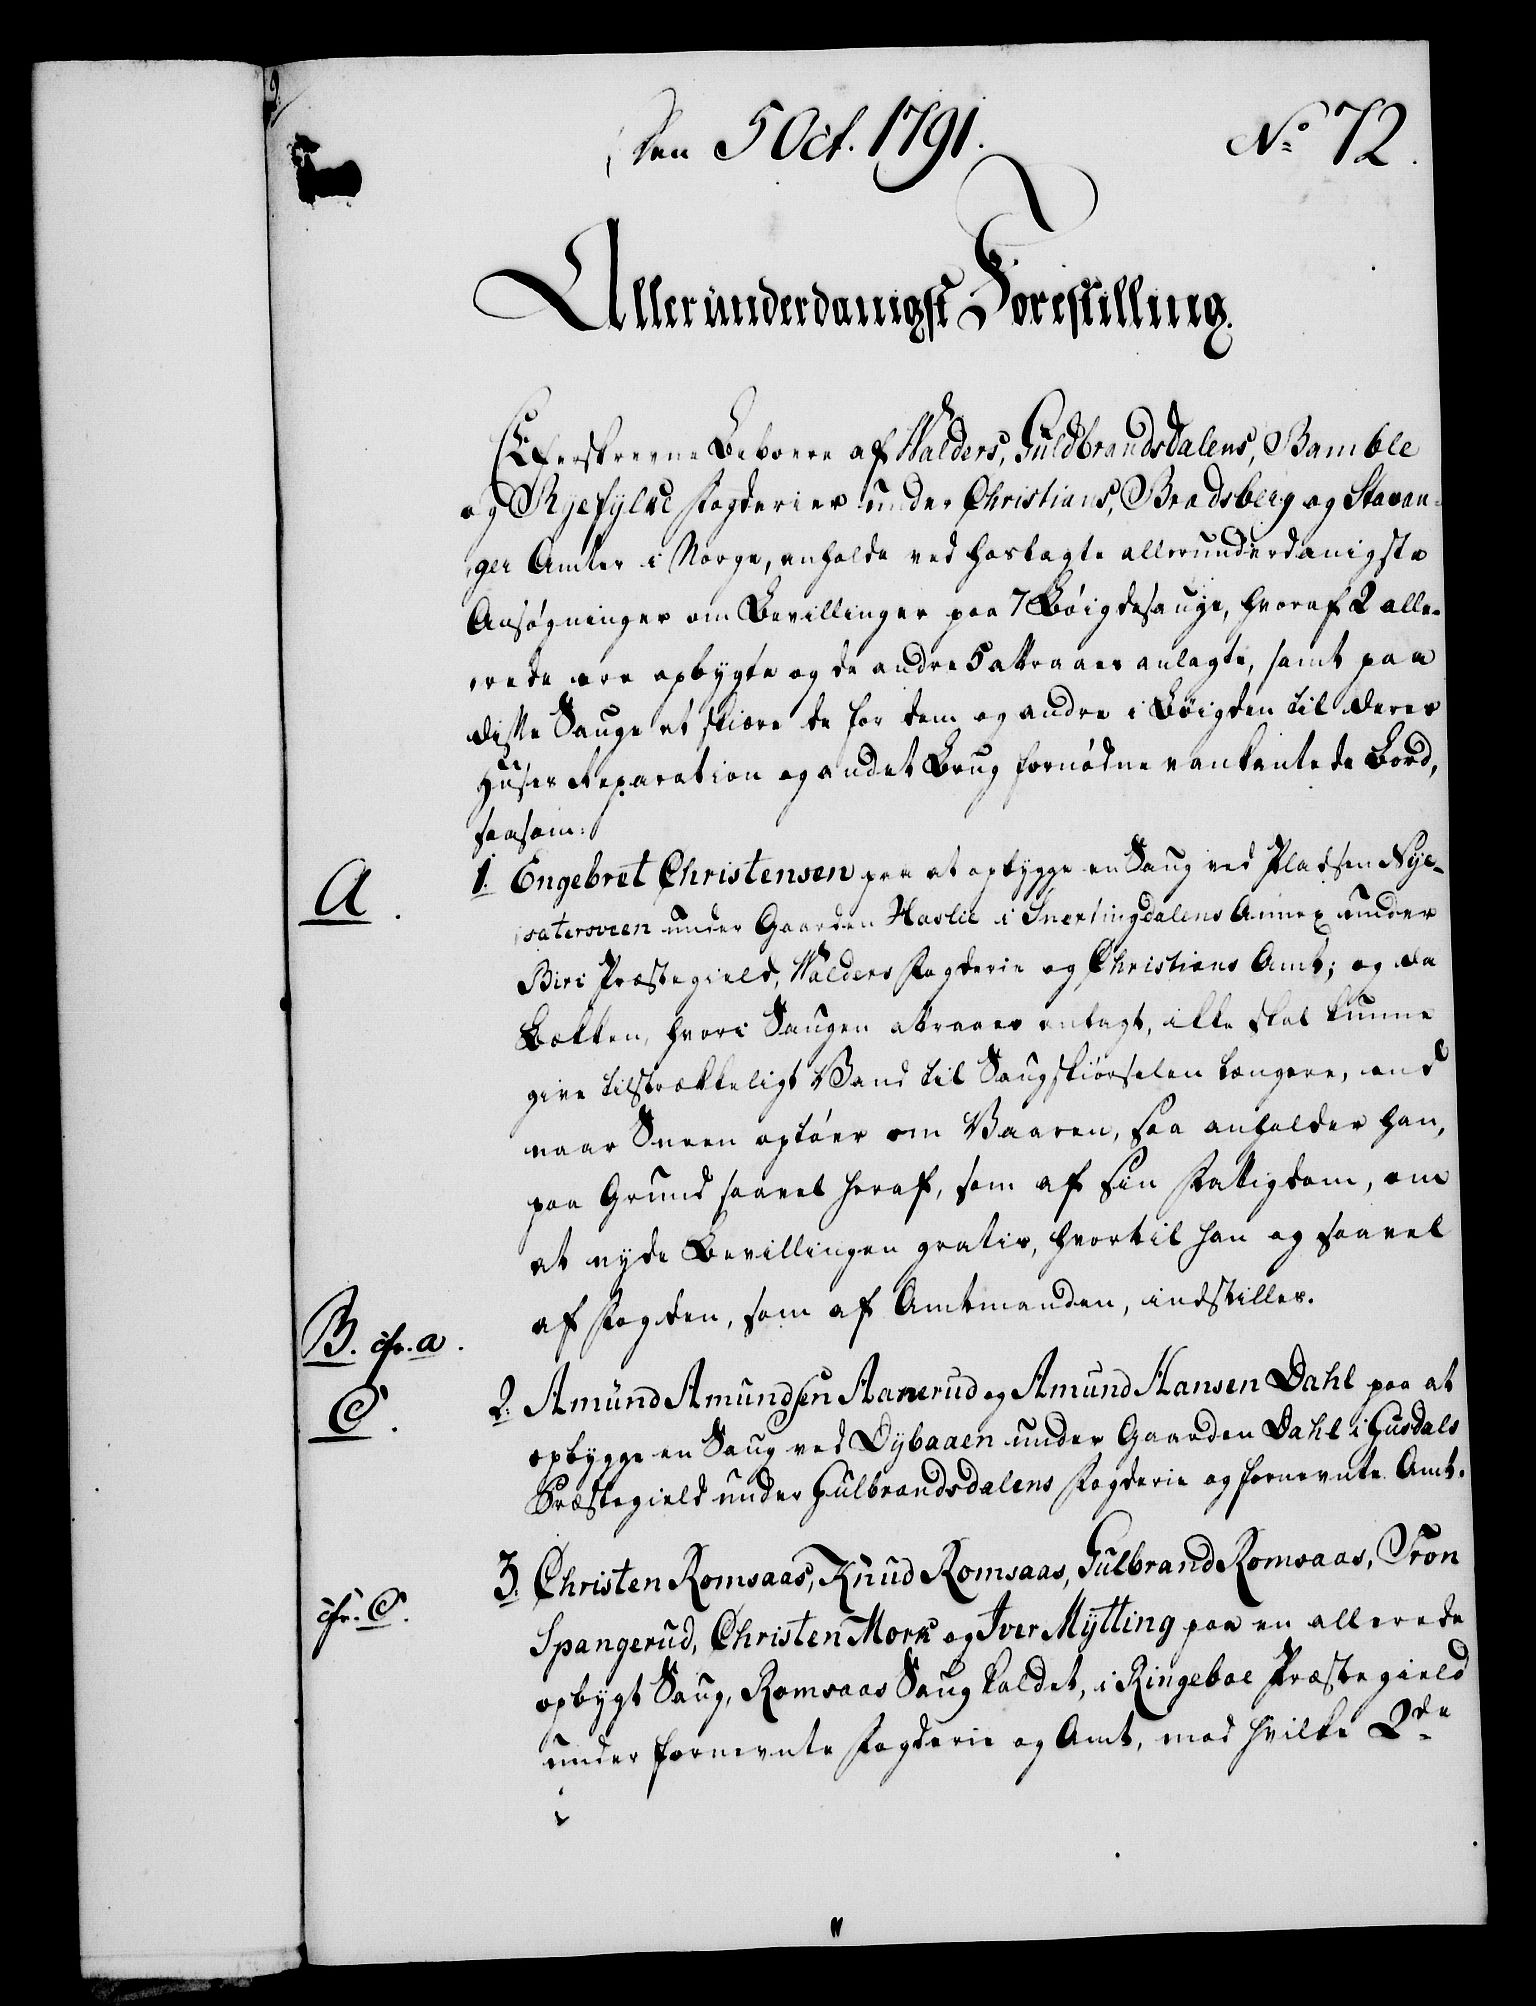 Den 5 Oct. 1791.
No 72.
Allerunderdanigst Forestilling.
Efterskrevne Beboere af Walders, Guldbrandsdalens, Bamble
og Ryefylke Fogderier under Christians, Bradsberg og Stavan-
ger Amter i Norge, anholde ved hoslagte allerunderdanigste
Ansøgninger om Bevillinger paa 7 Bøigdesauge, hvoraf 2 alle-
rede ere opbygte og de andre 5 attraaes anlagte, samt paa
disse Sauge at skiære de for dem og andre i Bøigden til deres
Huses Reparation og andet Brug fornødne vankantede Bord,
saasom:
A.
1. Engebret Christensen paa at opbygge en Saug ved Pladsen Nye-
sætersveen under Gaarden Haslie i Snertingdalens Annex under
Biri Præstegield, Walders Fogderie og Christians Amt; og da
Bækken, hvori Saugen attraaes anlagt, ikke skal kunne
give tilstrækkeligt Vand til Saugskiørselen længere, end
naar Sneen optøer om Vaaren, saa anholder han,
paa Grund saavel heraf, som af sin Fattigdom, om
at nyde Bevillingen gratis, hvortil han og saavel
af Fogden, som af Amtmanden, indstilles.
B. cfr. a.
C.
2. Amund Amundsen Aanerud og Amund Hansen Dahl paa at
opbygge en Saug ved Dybaaen under Gaarden Dahl i Gusdals
Præstegield under Gulbrandsdalens Fogderie og fornevnte Amt.
cfr. C.
3. Christen Romsaas, Knud Romsaas, Gulbrand Romsaas, Tron
Spangerud, Christen Mork og Iver Mytting paa en allerede
opbygt Saug, Romsaas Saug kaldet, i Ringeboe Præstegield
under fornevnte Fogderie og Amt, mod hvilke 2de
i